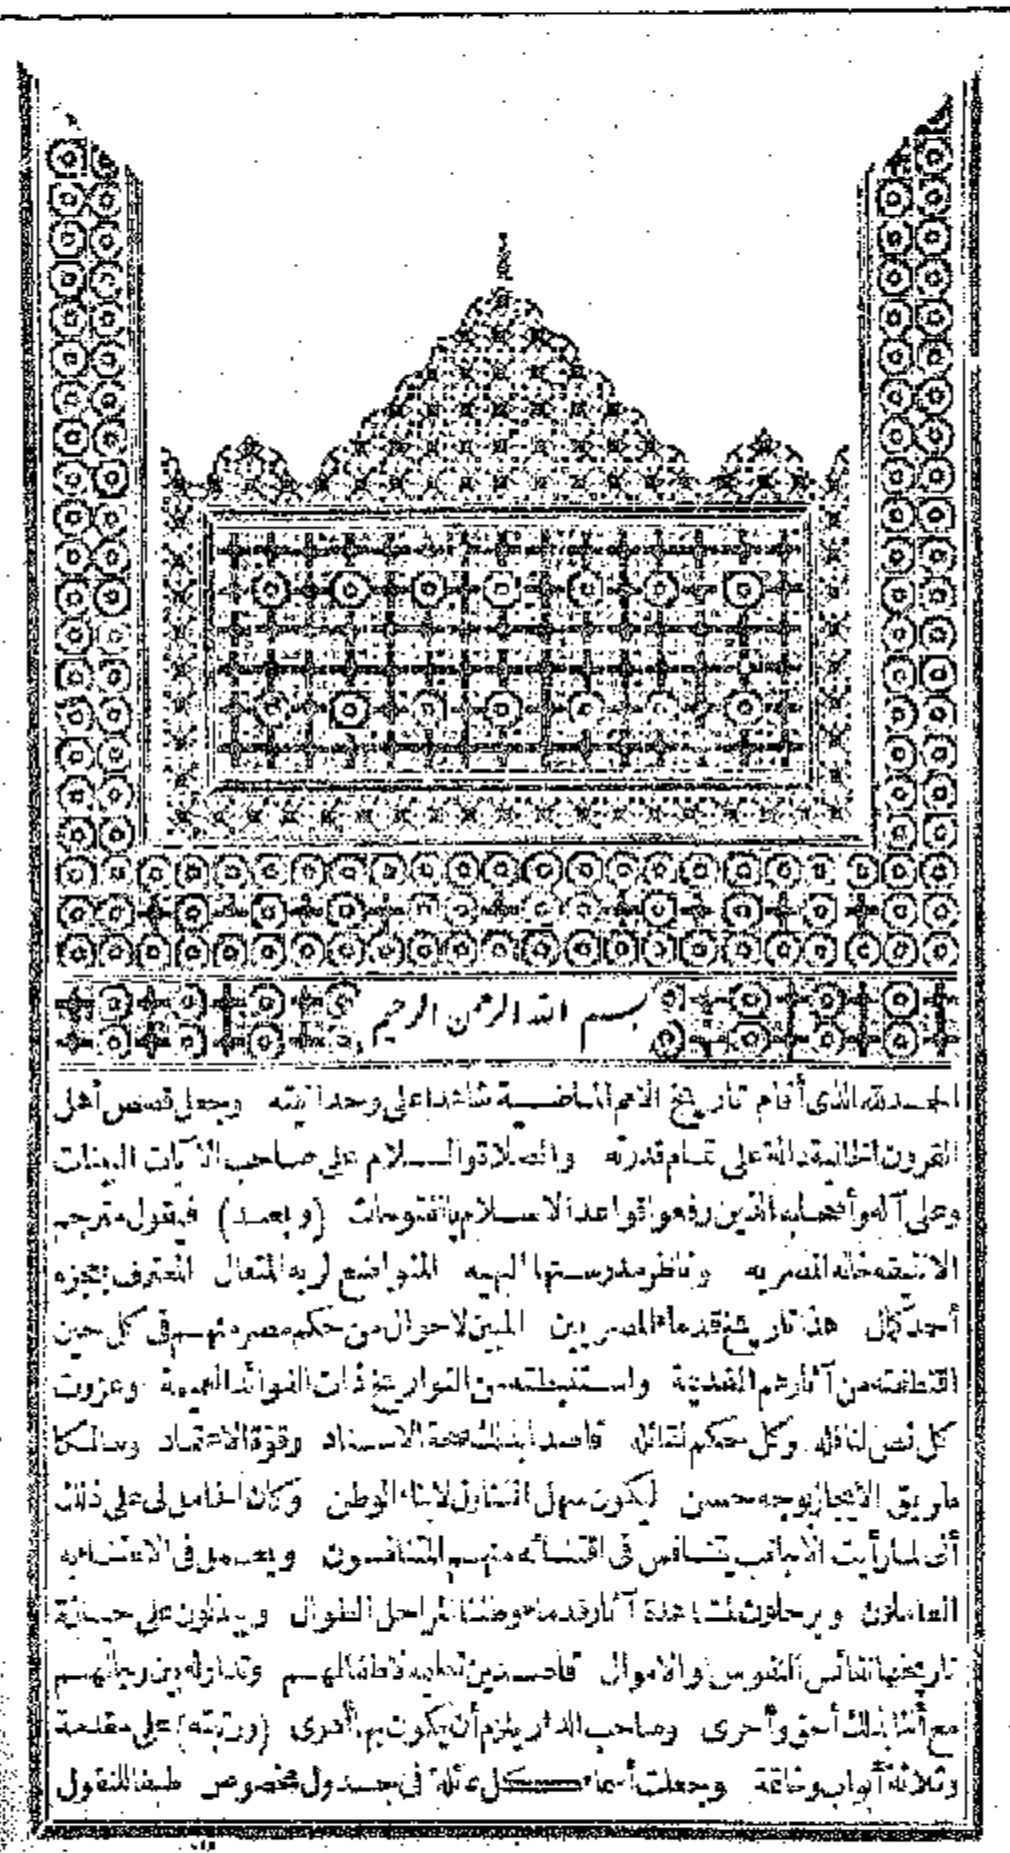 بسم الله الرحمن الرحيم
الحمد لله الذى أقام تاريخ الامم الماضية شاهدا على وحدانيته وجعل قصص أهل
القرون الخالية دالة على تمام قدرته والصلاة والسلام على صاحب الآيات البينات
وعلى آله وأصحابه الذين رفعوا قواعد الاسلام بالفتوحات (وبعد) فيقول مترجم
الانتيقه خانه المصريه وناظر مدرستها البهيه المتواضع لربه المتعال المعترف بعجزه
أحمد كمال هذا تاريخ قدماء المصريين المبين لاحوال من حكم مصر منهم فى كل حين
اقتطفته من آثارهم القديمة واستنبطته من التواريخ ذات الفوائد العميمة وعزوت
كل نص لناقله وكل حكم لقائله قاصدا بذلك صحة الاسناد وقوة الاعتماد وسالكا
طريق الايجاز بوجه حسن ليكون سهل التناول لابناء الوطن وكان الحامل لى على ذلك
أنى لما رأيت الأجانب يتنافس فى اقتنائه منهم المتنافسون ويعمل فى الاعتناء به
العاملون ويرحلون لمشاهدة آثار قدماء وطننا المراحل الطوال ويبذلون على حيازة
تاريخها نفائس النفوس والاموال قاصدين تعليمه لاطفالهم وتداوله بين رجالهم
مع أننا بذلك أحق وأحرى وصاحب الدار يلزم أن يكون بها أدرى (ورتبته) على مقدمة
وثلاثة أبواب وخاتمة وجعلت أسماء كل عائلة فى جدول مخصوص طبقا للنقول